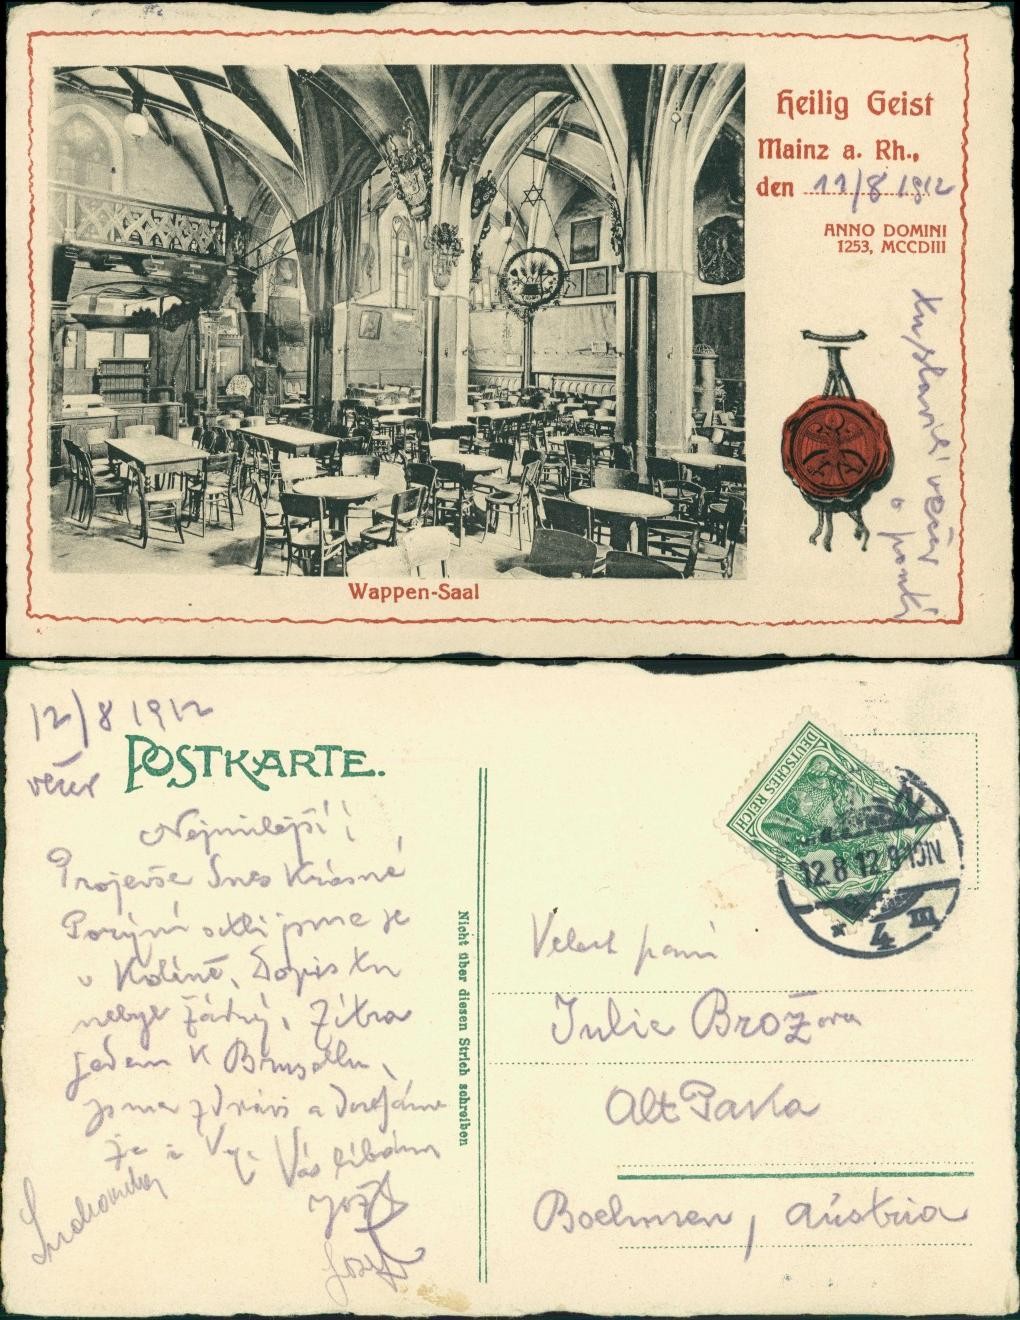 Heilig Geist
Mainz a. Rh.,
den 11/8 1912
ANNO DOMINI
1253, MCCDIII
Wappen-Saal
12/8 1912
večer
POSTKARTE.
Nejmilejší!
Projevše dnes krásné
Porýní jsme
v Kolíně, Dopis tu
nebyl žádný, Zítra
jedem k Bruselu,
jsme zdrávi a doufáme
že i Vy. Vás líbám
Josef
Nicht über diesen Strich schreiben
DEUTSCHES REICH
12.8.12.9-10N.
* 4 III
Velect. paní
Julie Brožova
Alt Paka
Boehmen, Austria